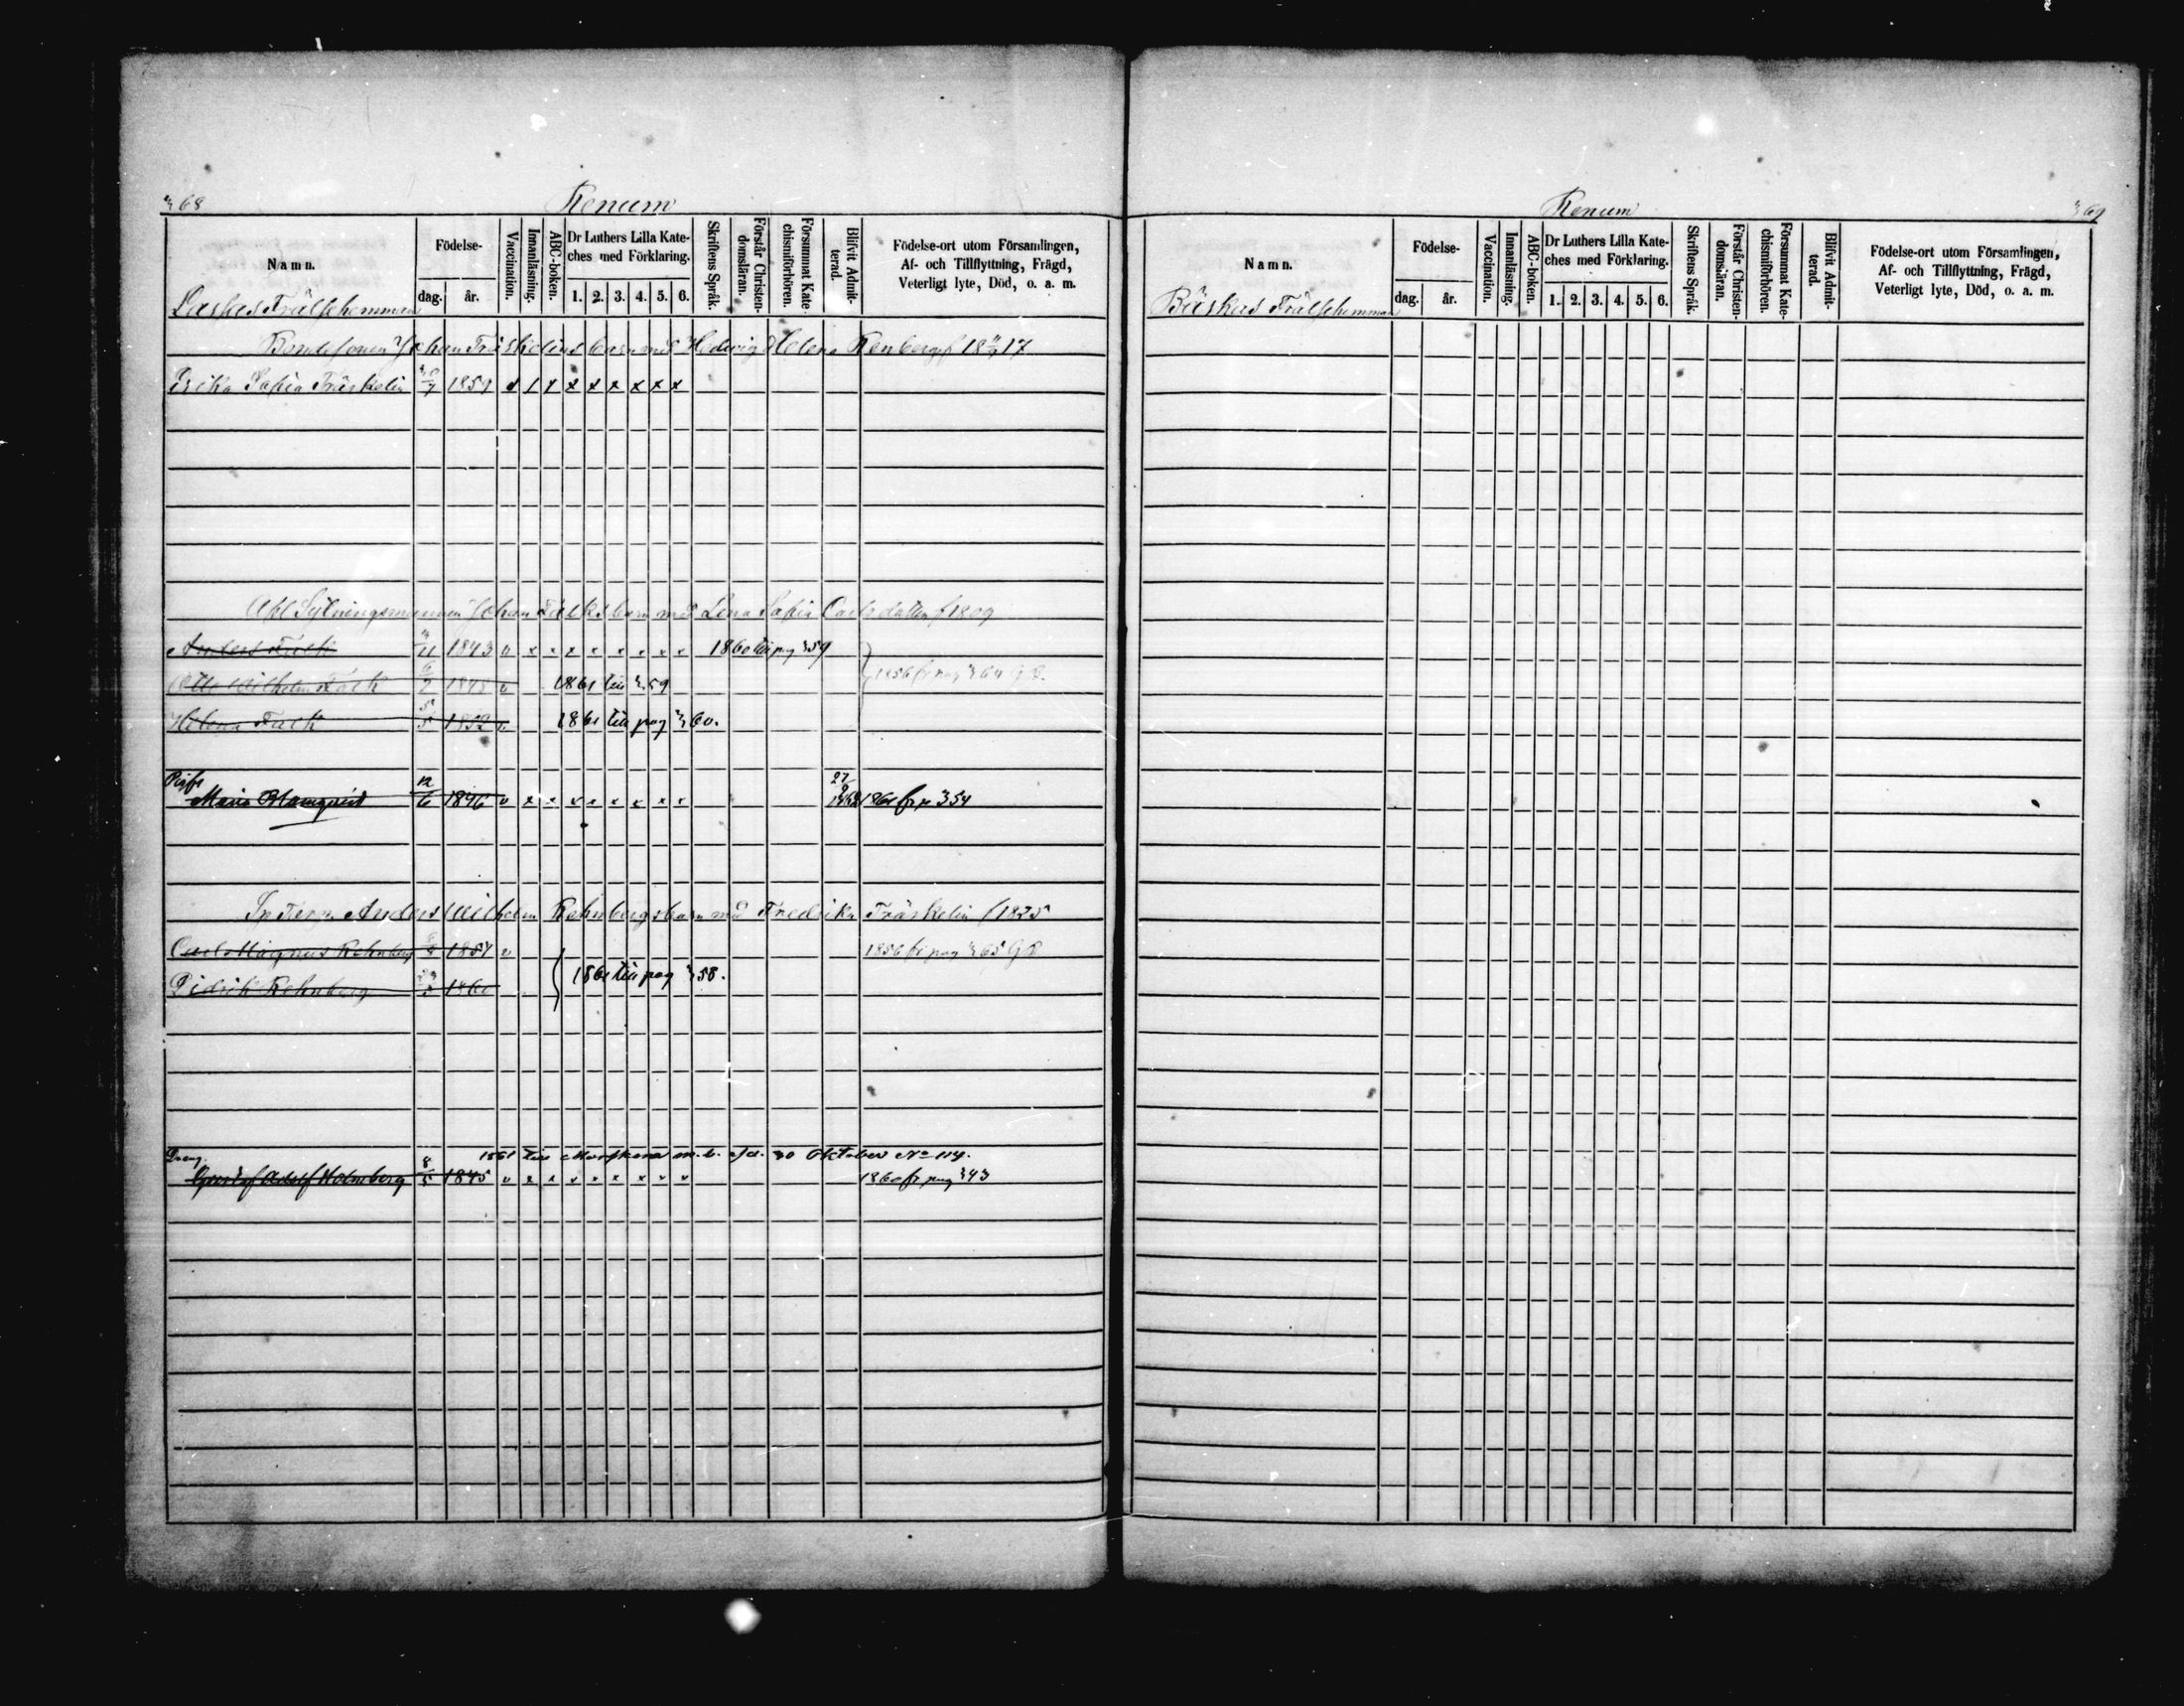 368
Renum
Namn.
Födelse-
dag.
år.
Vaccination.
Innanläsning.
ABC-boken.
Dr Luthers Lilla Kate-
ches med Förklaring.
1. 2. 3. 4. 5. 6.
Skriftens Språk.
Förstår Christen-
domsläran.
Försummat Kate-
chismiförhören.
Blifvit Admit-
terad.
Födelse-ort utom Församlingen,
Af- och Tillflyttning, Frägd,
Veterligt lyte, Död, o. a. m.
Lassas Frälsehemman
Bondesonen Johan Träskelins barn med Hedvig Helena Renberg f 18 17
Erika Sofia Träskelin 1851 x x x x x x x x
Johan Facks barn med Lena Sofia Carlsdotter f 1809
Anders Fack 11 1843 v x x x x x x x x 1860 till pag 359
Otto Wilhelm Fack 1848 v 1861 till 359 1856 fr pag 364 G B.
Helena Fack 5 1852 v 1861 till pag 360.
Pigfl
Maria Blomqvist 12/6 1846 v x x x x x x x x 27 1862 1861 fr p 354
Anders Wilhelm Rehnbergs barn med Fredrika Träskelin f 1825
Carl Magnus Rehnberg 1854 v 1856 fr pag 365 G B
Didrik Rehnberg 1860 1861 till pag 358.
Dreng. 1861 till m. b. af d. 30 Oktober No 114.
Gustaf Adolf Holmberg 8/5 1845 v x x x x x x x x 1860 fr pag 343
Renum
369
Namn.
Födelse-
dag.
år.
Vaccination.
Innanläsning.
ABC-boken.
Dr Luthers Lilla Kate-
ches med Förklaring.
1. 2. 3. 4. 5. 6.
Skriftens Språk.
Förstår Christen-
domsläran.
Försummat Kate-
chismiförhören.
Blifvit Admit-
terad.
Födelse-ort utom Församlingen,
Af- och Tillflyttning, Frägd,
Veterligt lyte, Död, o. a. m.
Bäskas Frälsehemman